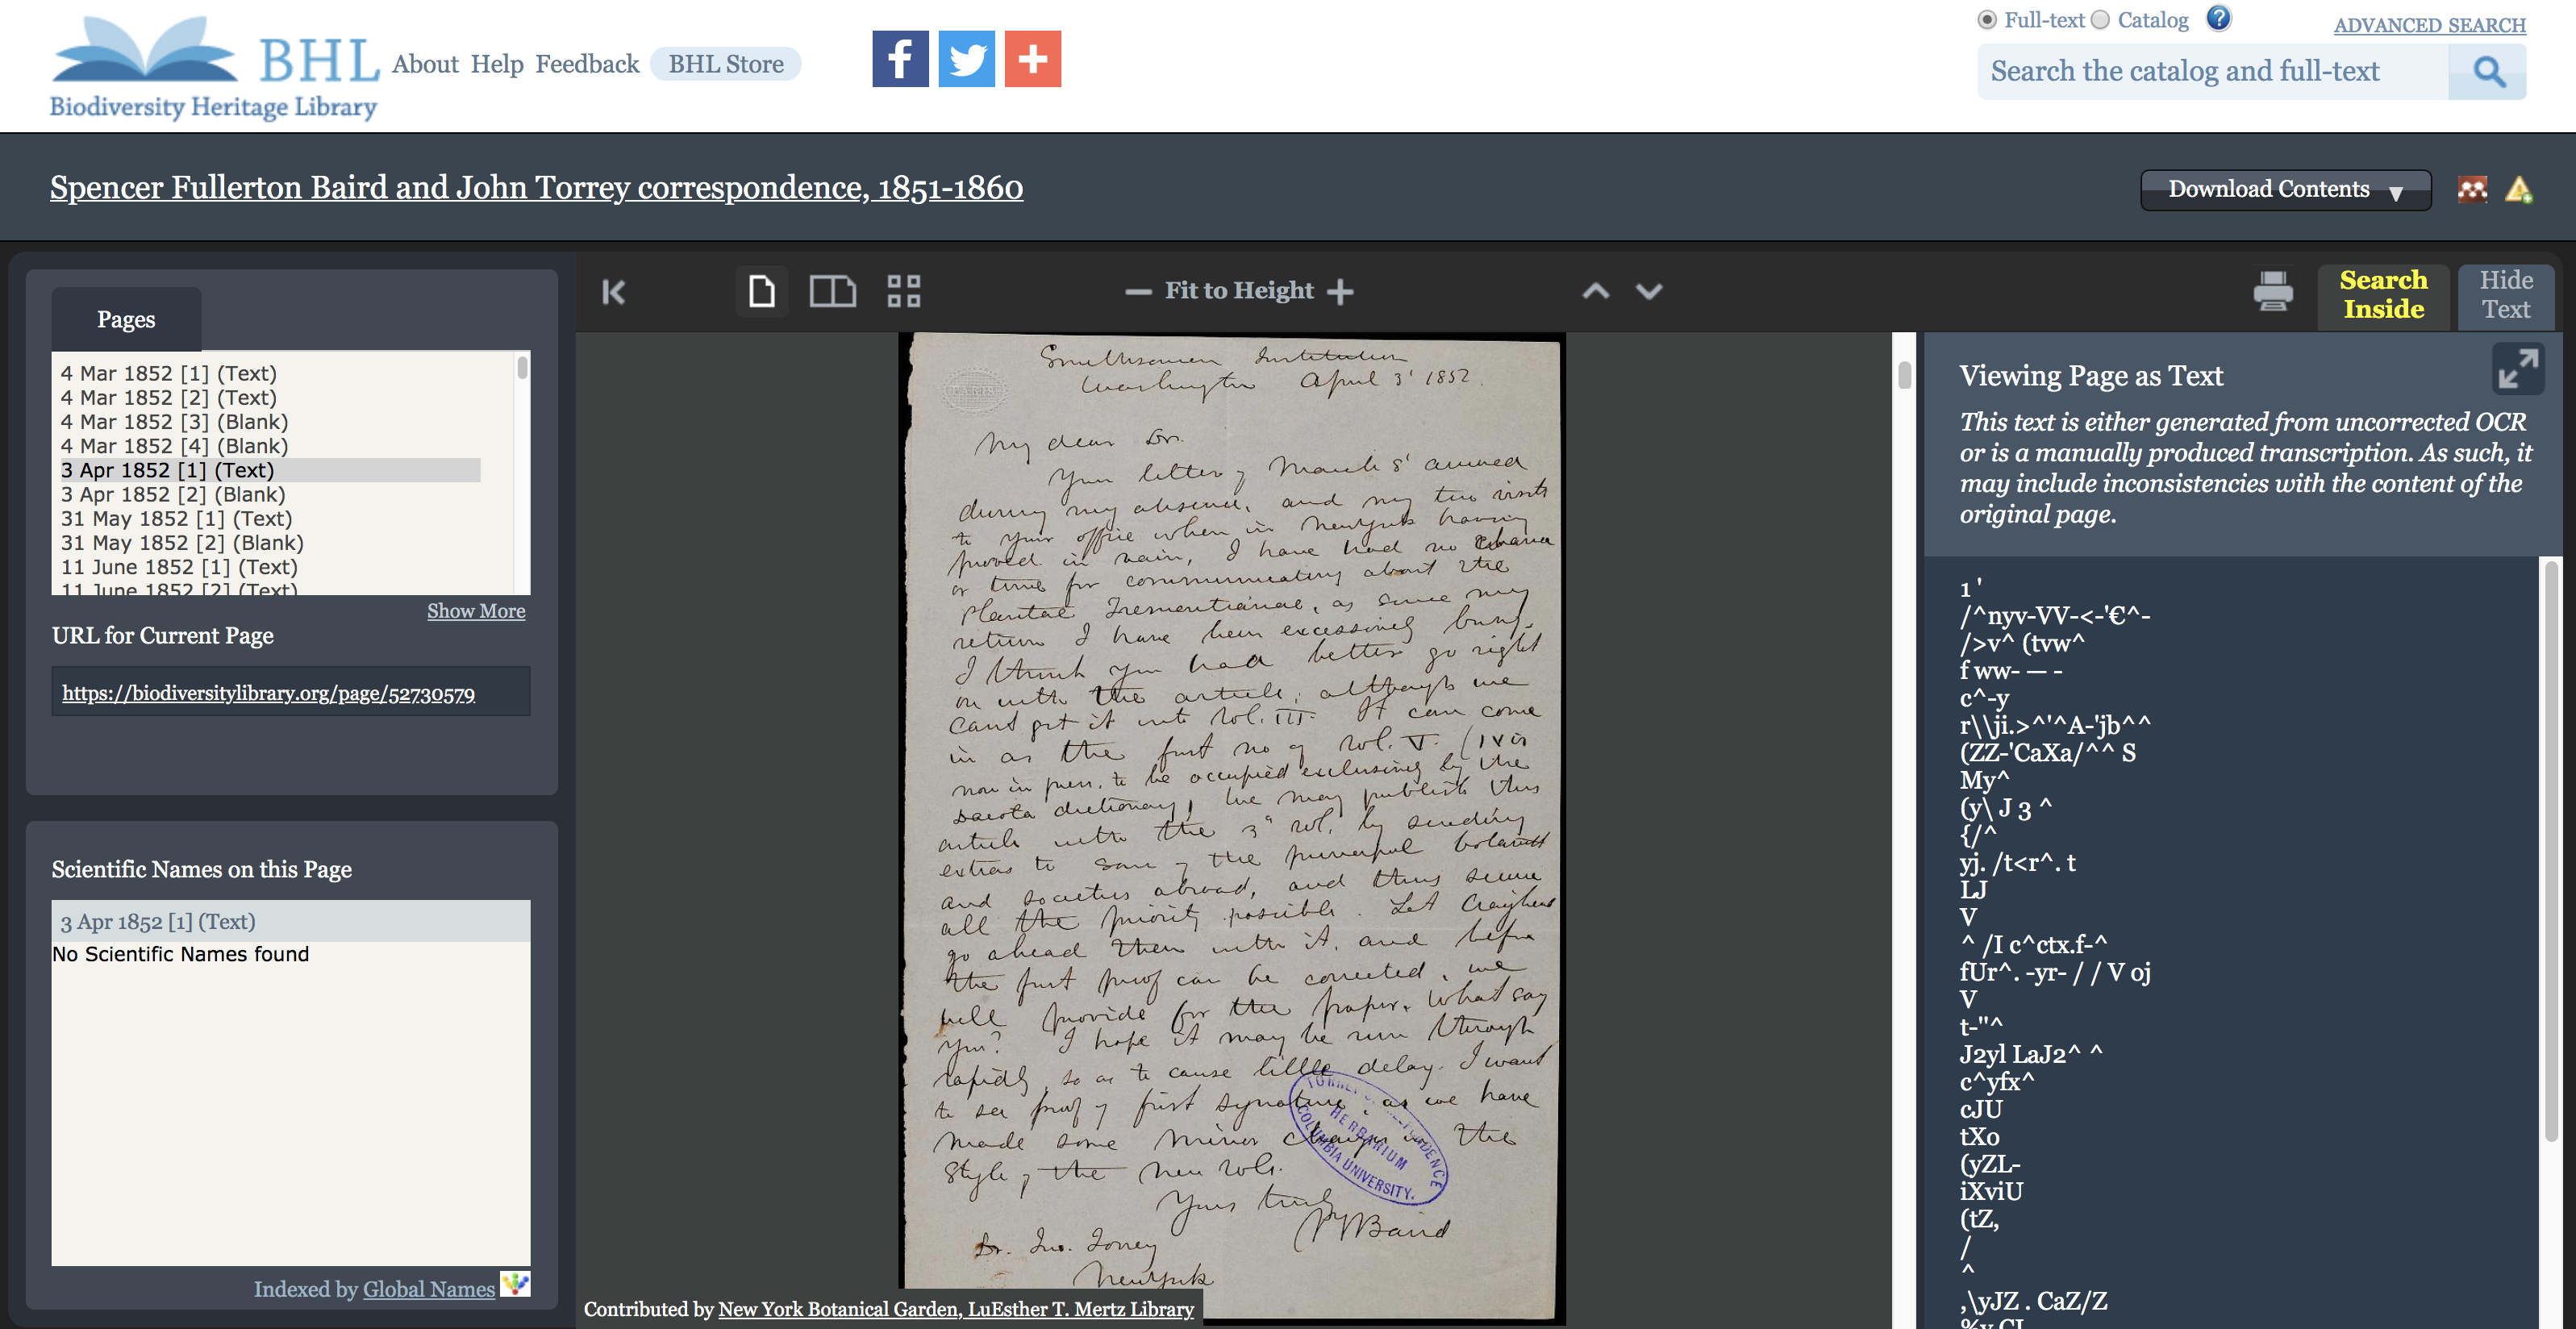 BHL
Biodiversity Heritage Library
About Help Feedback BHL Store
Full-text Catalog ? ADVANCED SEARCH
Search the catalog and full-text
Spencer Fullerton Baird and John Torrey correspondence, 1851-1860
Download Contents ▼
Pages
4 Mar 1852 [1] (Text)
4 Mar 1852 [2] (Text)
4 Mar 1852 [3] (Blank)
4 Mar 1852 [4] (Blank)
3 Apr 1852 [1] (Text)
3 Apr 1852 [2] (Blank)
31 May 1852 [1] (Text)
31 May 1852 [2] (Blank)
11 June 1852 [1] (Text)
11 June 1852 [2] (Text)
Show More
URL for Current Page
https://biodiversitylibrary.org/page/52730579
Scientific Names on this Page
3 Apr 1852 [1] (Text)
No Scientific Names found
Indexed by Global Names
Fit to Height
Search
Inside
Hide
Text
Smithsonian Institution
Washington April 3' 1852.
My dear Dr.
Your letter of March 8' arrived
during my absence, and my two visits
to your office when in New York having
proved in vain, I have had no chance
or time for communicating about the
Plantae Fremontianae, as since my
return I have been excessively busy.
I think you had better go right
on with the article, although we
cant get it into Vol. III. It can come
in as the first no of Vol. V. (IV is
now in press, to be occupied exclusively by the
Dacota dictionary) We may publish this
article with the 3d vol. by sending
extras to some of the principal botanists
and societies abroad, and thus secure
all the priority possible. Let Craighead
go ahead then with it, and before
the first proof can be corrected, we
will provide for the paper. What say
you? I hope it may be run through
rapidly, so as to cause little delay. I want
to see proof of first signature, as we have
made some minor changes in the
style of the new vols.
Yours truly
SFBaird
Dr. Jno. Torrey
New York
HERBARIUM
COLUMBIA UNIVERSITY.
Contributed by New York Botanical Garden, LuEsther T. Mertz Library
Viewing Page as Text
This text is either generated from uncorrected OCR
or is a manually produced transcription. As such, it
may include inconsistencies with the content of the
original page.
1 '
/^nyv-VV-<-'€^-
/>v^ (tvw^
f ww- — -
c^-y
r\\ji.>^'^A-'jb^^
(ZZ-'CaXa/^^ S
My^
(y\ J 3 ^
{/^
yj. /t<r^. t
LJ
V
^ /I c^ctx.f-^
fUr^. -yr- / / V oj
V
t-"^
J2yl LaJ2^ ^
c^yfx^
cJU
tXo
(yZL-
iXviU
(tZ,
/
^
,\yJZ . CaZ/Z